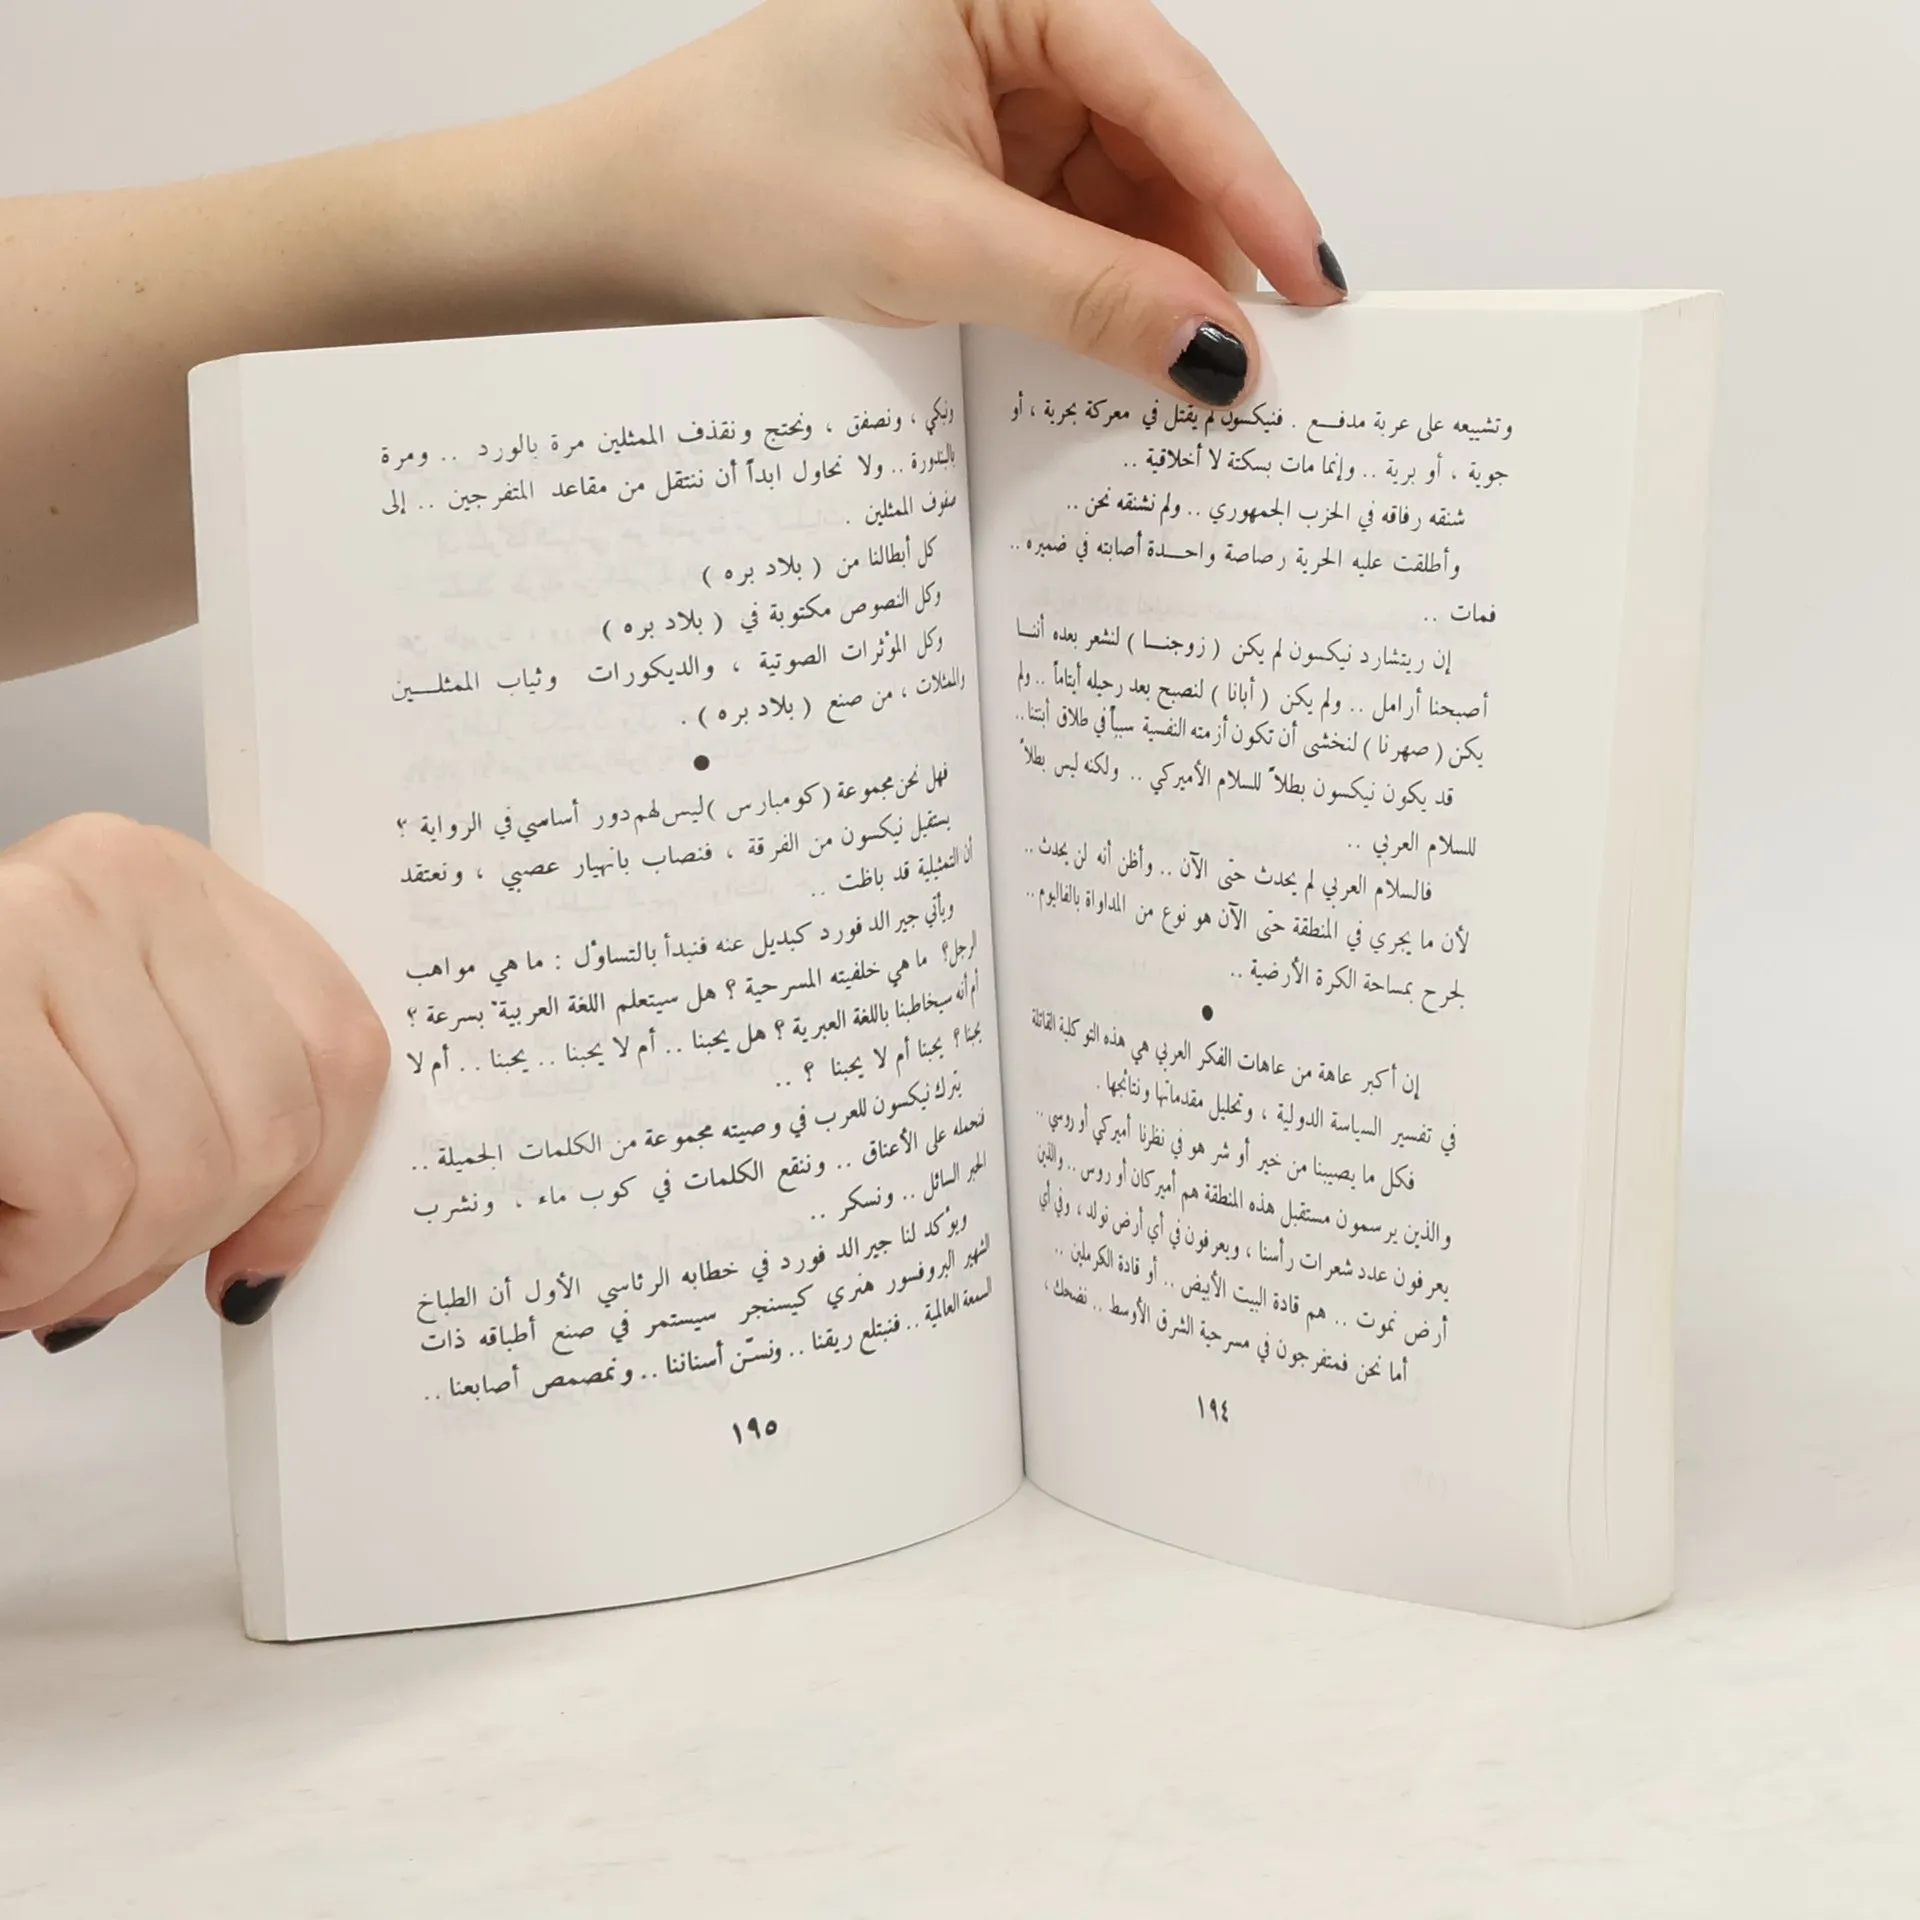 وتشييعه على عربة مدفـع . فنيكسون لم يقتل في معركة بحرية ، أو
جوية ، أو برية .. وإنما مات بسكتة لا أخلاقية ..
شنقه رفاقه في الحزب الجمهوري .. ولم نشنقه نحن ..
وأطلقت عليه الحرية رصاصة واحـدة أصابته في ضميره ..
فمات ..
إن ريتشارد نيكسون لم يكن ( زوجنـا ) لنشعر بعده أننـا
أصبحنا أرامل .. ولم يكن ( أبانا ) لنصبح بعد رحيله أيتاماً .. ولم
يكن ( صهرنا ) لنخشى أن تكون أزمته النفسية سبباً في طلاق أبنتنا ..
قد يكون نيكسون بطلاً للسلام الأميركي .. ولكنه ليس بطلاً
للسلام العربي ..
فالسلام العربي لم يحدث حتى الآن .. وأظن أنه لن يحدث ..
لأن ما يجري في المنطقة حتى الآن هو نوع من المداواة بالفاليوم ..
لجرح بمساحة الكرة الأرضية ..
●
إن أكبر عاهة من عاهات الفكر العربي هي هذه التوكلية القاتلة
في تفسير السياسة الدولية ، وتحليل مقدماتها ونتائجها .
فكل ما يصيبنا من خير أو شر هو في نظرنا أميركي أو روسي ..
والذين يرسمون مستقبل هذه المنطقة هم أميركان أو روس .. والذين
يعرفون عدد شعرات رأسنا ، ويعرفون في أي أرض نولد ، وفي أي
أرض نموت .. هم قادة البيت الأبيض .. أو قادة الكرملين ..
أما نحن فمتفرجون في مسرحية الشرق الأوسط .. نضحك ،
١٩٤
ونبكي ، ونصفق ، ونحتج ونقذف الممثلين مرة بالورد .. ومرة
بالبندورة .. ولا نحاول ابداً أن ننتقل من مقاعد المتفرجين .. إلى
صفوف الممثلين .
كل أبطالنا من ( بلاد بره )
وكل النصوص مكتوبة في ( بلاد بره )
وكل المؤثرات الصوتية ، والديكورات وثياب الممثلـين
والممثلات ، من صنع ( بلاد بره ) .
●
فهل نحن مجموعة ( كومبارس ) ليس لهم دور أساسي في الرواية ؟
يستقيل نيكسون من الفرقة ، فنصاب بانهيار عصبي ، ونعتقد
أن التمثيلية قد باظت ..
ويأتي جيرالد فورد كبديل عنه فنبدأ بالتساؤل : ما هي مواهب
الرجل؟ ما هي خلفيته المسرحية ؟ هل سيتعلم اللغة العربية بسرعة ؟
أم أنه سيخاطبنا باللغة العبرية ؟ هل يحبنا .. أم لا يحبنا .. يحبنا .. أم لا
يحبنا ؟ يحبنا أم لا يحبنا ؟ ..
يترك نيكسون للعرب في وصيته مجموعة من الكلمات الجميلة ..
فنحمله على الأعناق .. وننقع الكلمات في كوب ماء ، ونشرب
الحبر السائل .. ونسكر ..
ويؤكد لنا جيرالد فورد في خطابه الرئاسي الأول أن الطباخ
الشهير البروفسور هنري كيسنجر سيستمر في صنع أطباقه ذات
السمعة العالمية .. فنبتلع ريقنا .. ونسنّ أسناننا .. ونمصمص أصابعنا ..
١٩٥